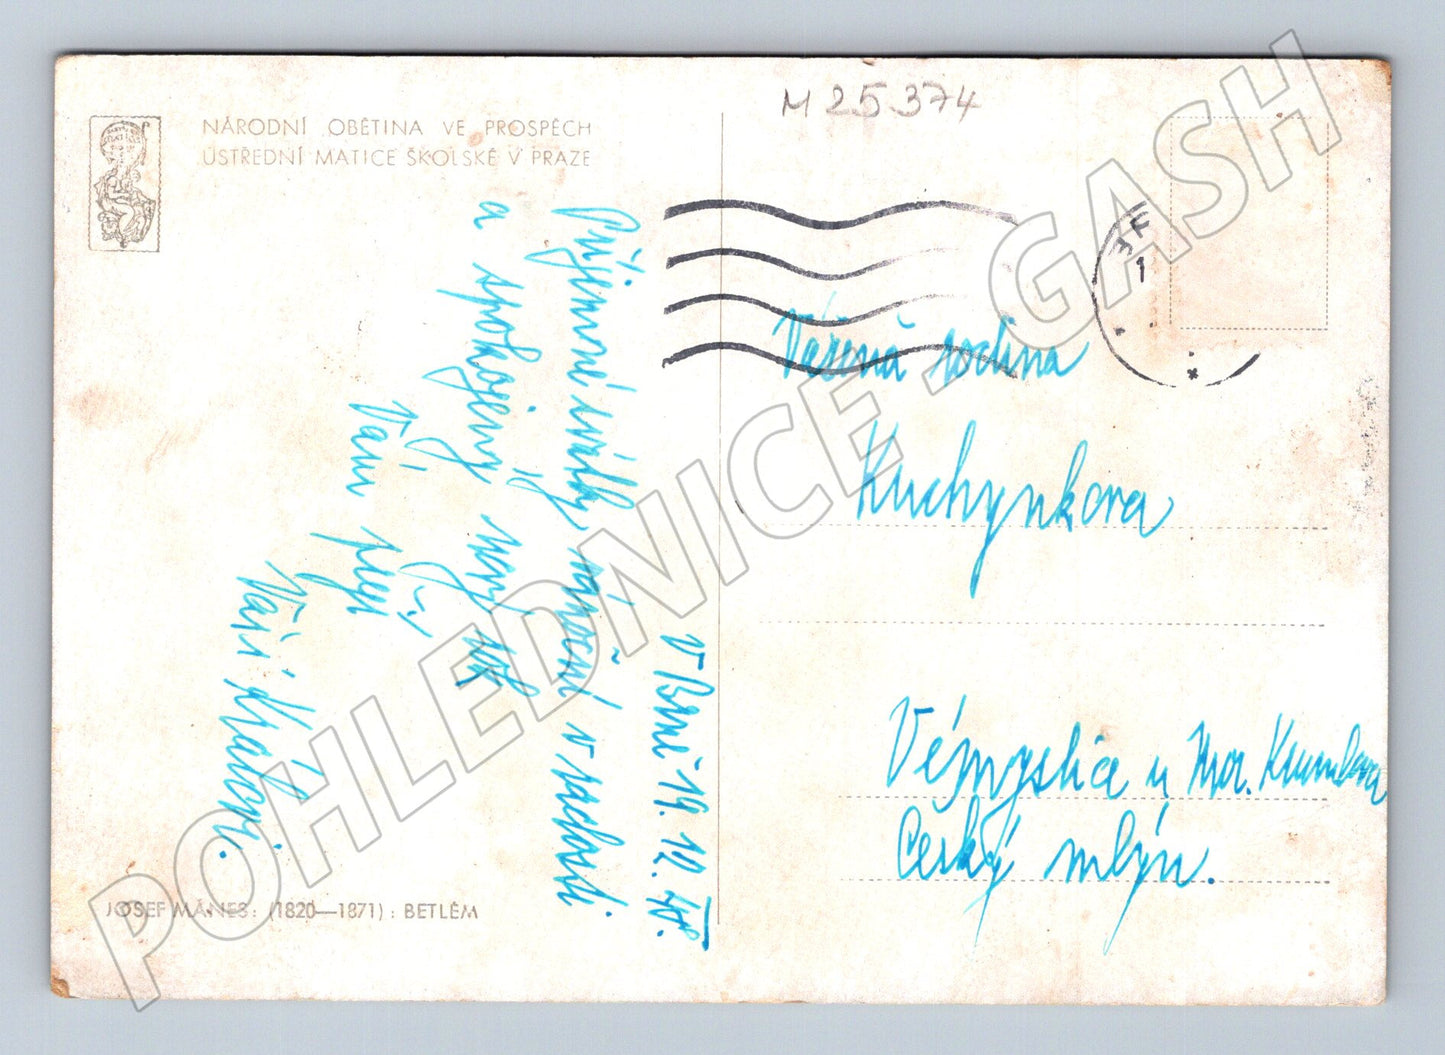 M 25 374
NÁRODNÍ OBĚTINA VE PROSPĚCH
ÚSTŘEDNÍ MATICE ŠKOLSKÉ V PRAZE
V Brně 19. 12.
Příjemné svátky vánoční v radosti
a spokojený nový rok
Vám přejí
Vaši Královi.
Vážená rodina
Kuchynkova
Vémyslice u Mor. Krumlova
Český mlýn.
JOSEF MÁNES: (1820—1871): BETLÉM
POHLEDNICE - GASH